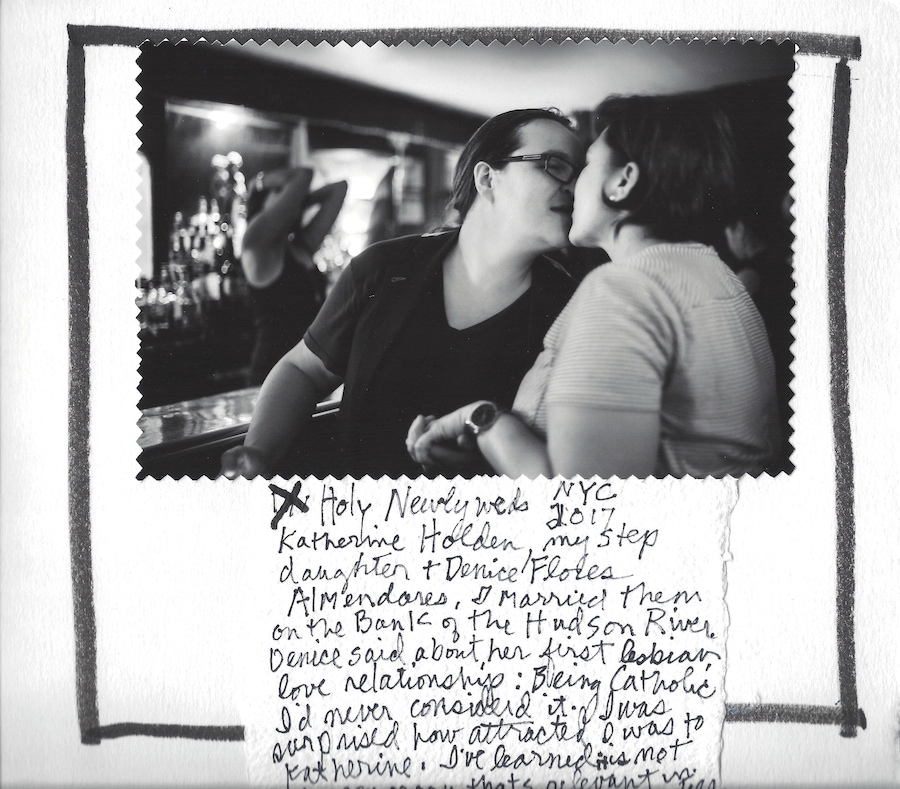 Holy Newlyweds NYC
2017
Katherine Holden, my step
daughter + Denice Flores
Almendares, I married them
on the Bank of the Hudson River.
Denice said about her first lesbian
love relationship: Being Catholic
I'd never considerd it. I was
surprised how attracted I was to
Katherine. I've learned its not
that's relevant in